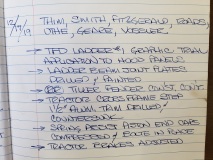 12/17/19 THIM, SMITH, FITZGERALD, ROADS,
UTHE, GEARE, VESSLER.
→ TFD LADDER 1 GRAPHIC TRIAL
APPLICATION TO HOOD PANELS
→ LADDER BEAM JOINT PLATES
DRILLED & PAINTED
→ TILLER FENDER CONST. CONT.
→ TRACTOR CROSS FRAME STEP
1/2" ALUM. TRIM DRILLED &
COUNTERSUNK
→ SPRING ASSIST PISTON END CAPS
COMPRESSED & BOLTE IN PLACE
→ TRACTOR BRAKES ADJUSTED